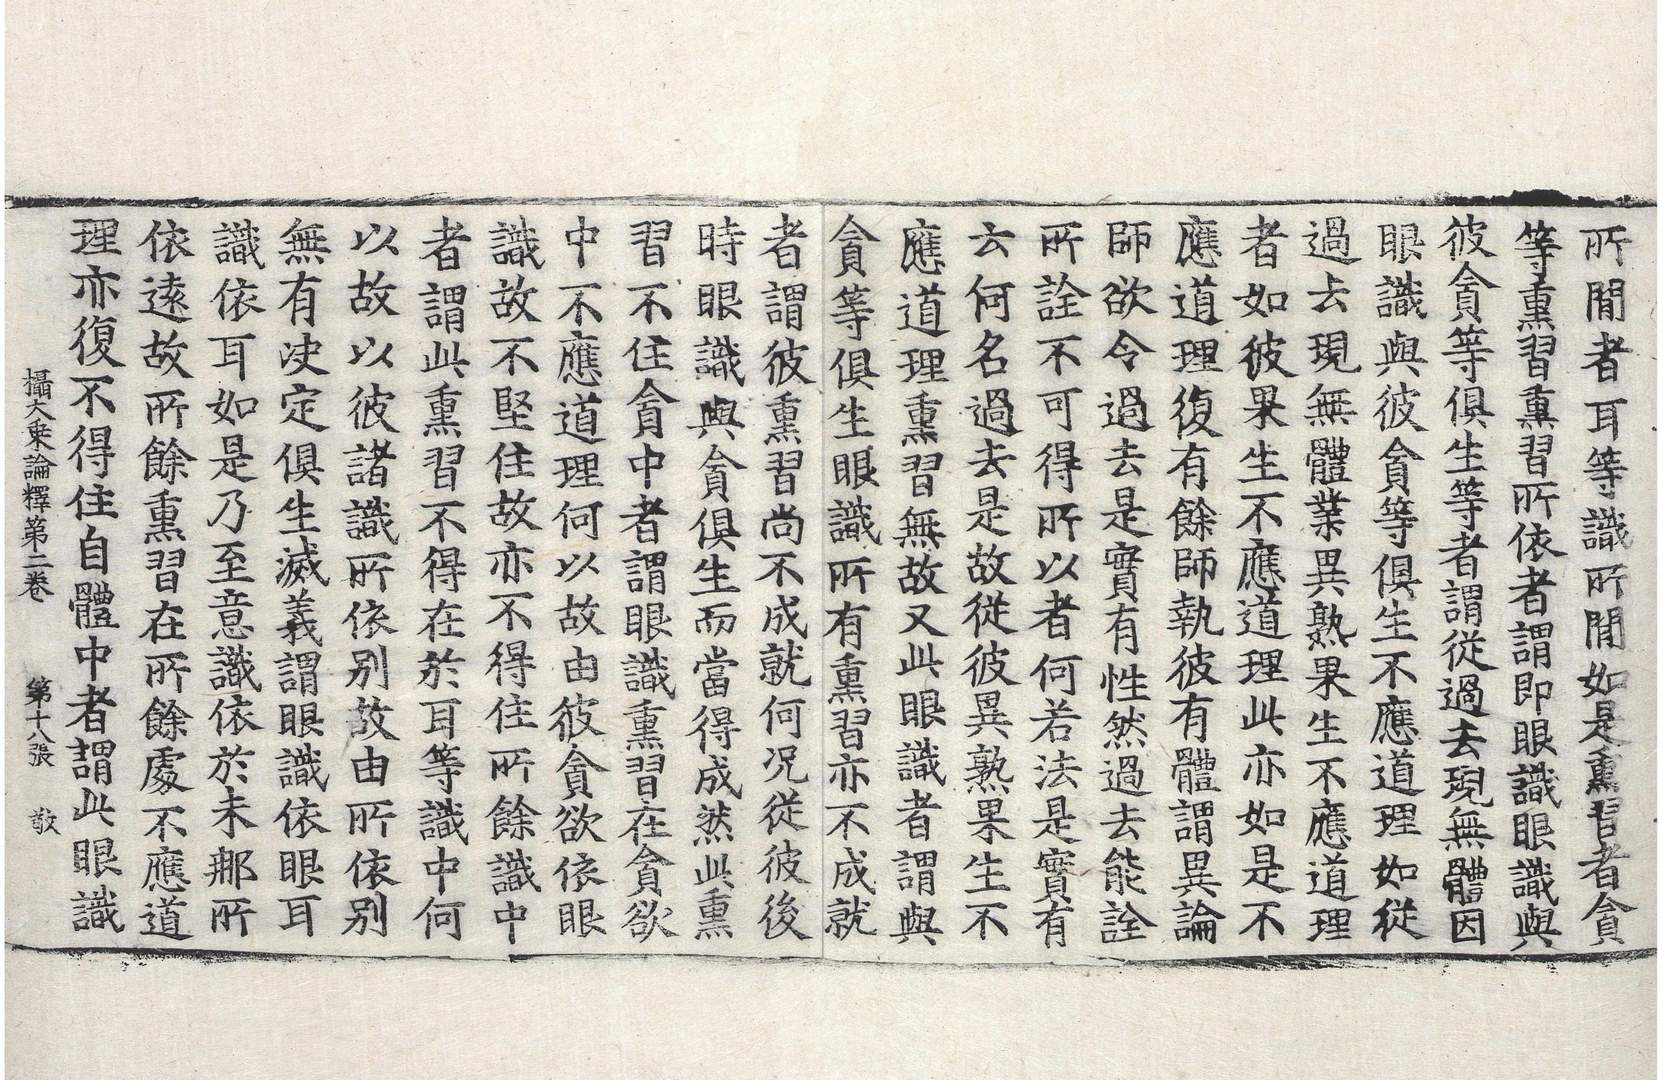 所聞者耳等識所聞如是熏習者貪
等熏習熏習所依者謂即眼識眼識與
彼貪等俱生等者謂從過去現無體因
眼識與彼貪等俱生不應道理如從
過去現無體業異熟果生不應道理
者如彼果生不應道理此亦如是不
應道理復有餘師執彼有體謂異論
師欲令過去是實有性然過去能詮
所詮不可得所以者何若法是實有
云何名過去是故從彼異熟果生不
應道理熏習無故又此眼識者謂與
貪等俱生眼識所有熏習亦不成就
者謂彼熏習尚不成就何況從彼後
時眼識與貪俱生而當得成然此熏
習不住貪中者謂眼識熏習在貪欲
中不應道理何以故由彼貪欲依眼
識故不堅住故亦不得住所餘識中
者謂此熏習不得在於耳等識中何
以故以彼諸識所依別故由所依別
無有決定俱生滅義謂眼識依眼耳
識依耳如是乃至意識依於末那所
依遠故所餘熏習在所餘處不應道
理亦復不得住自體中者謂此眼識
攝大乘論釋第二卷 第十八張 敬